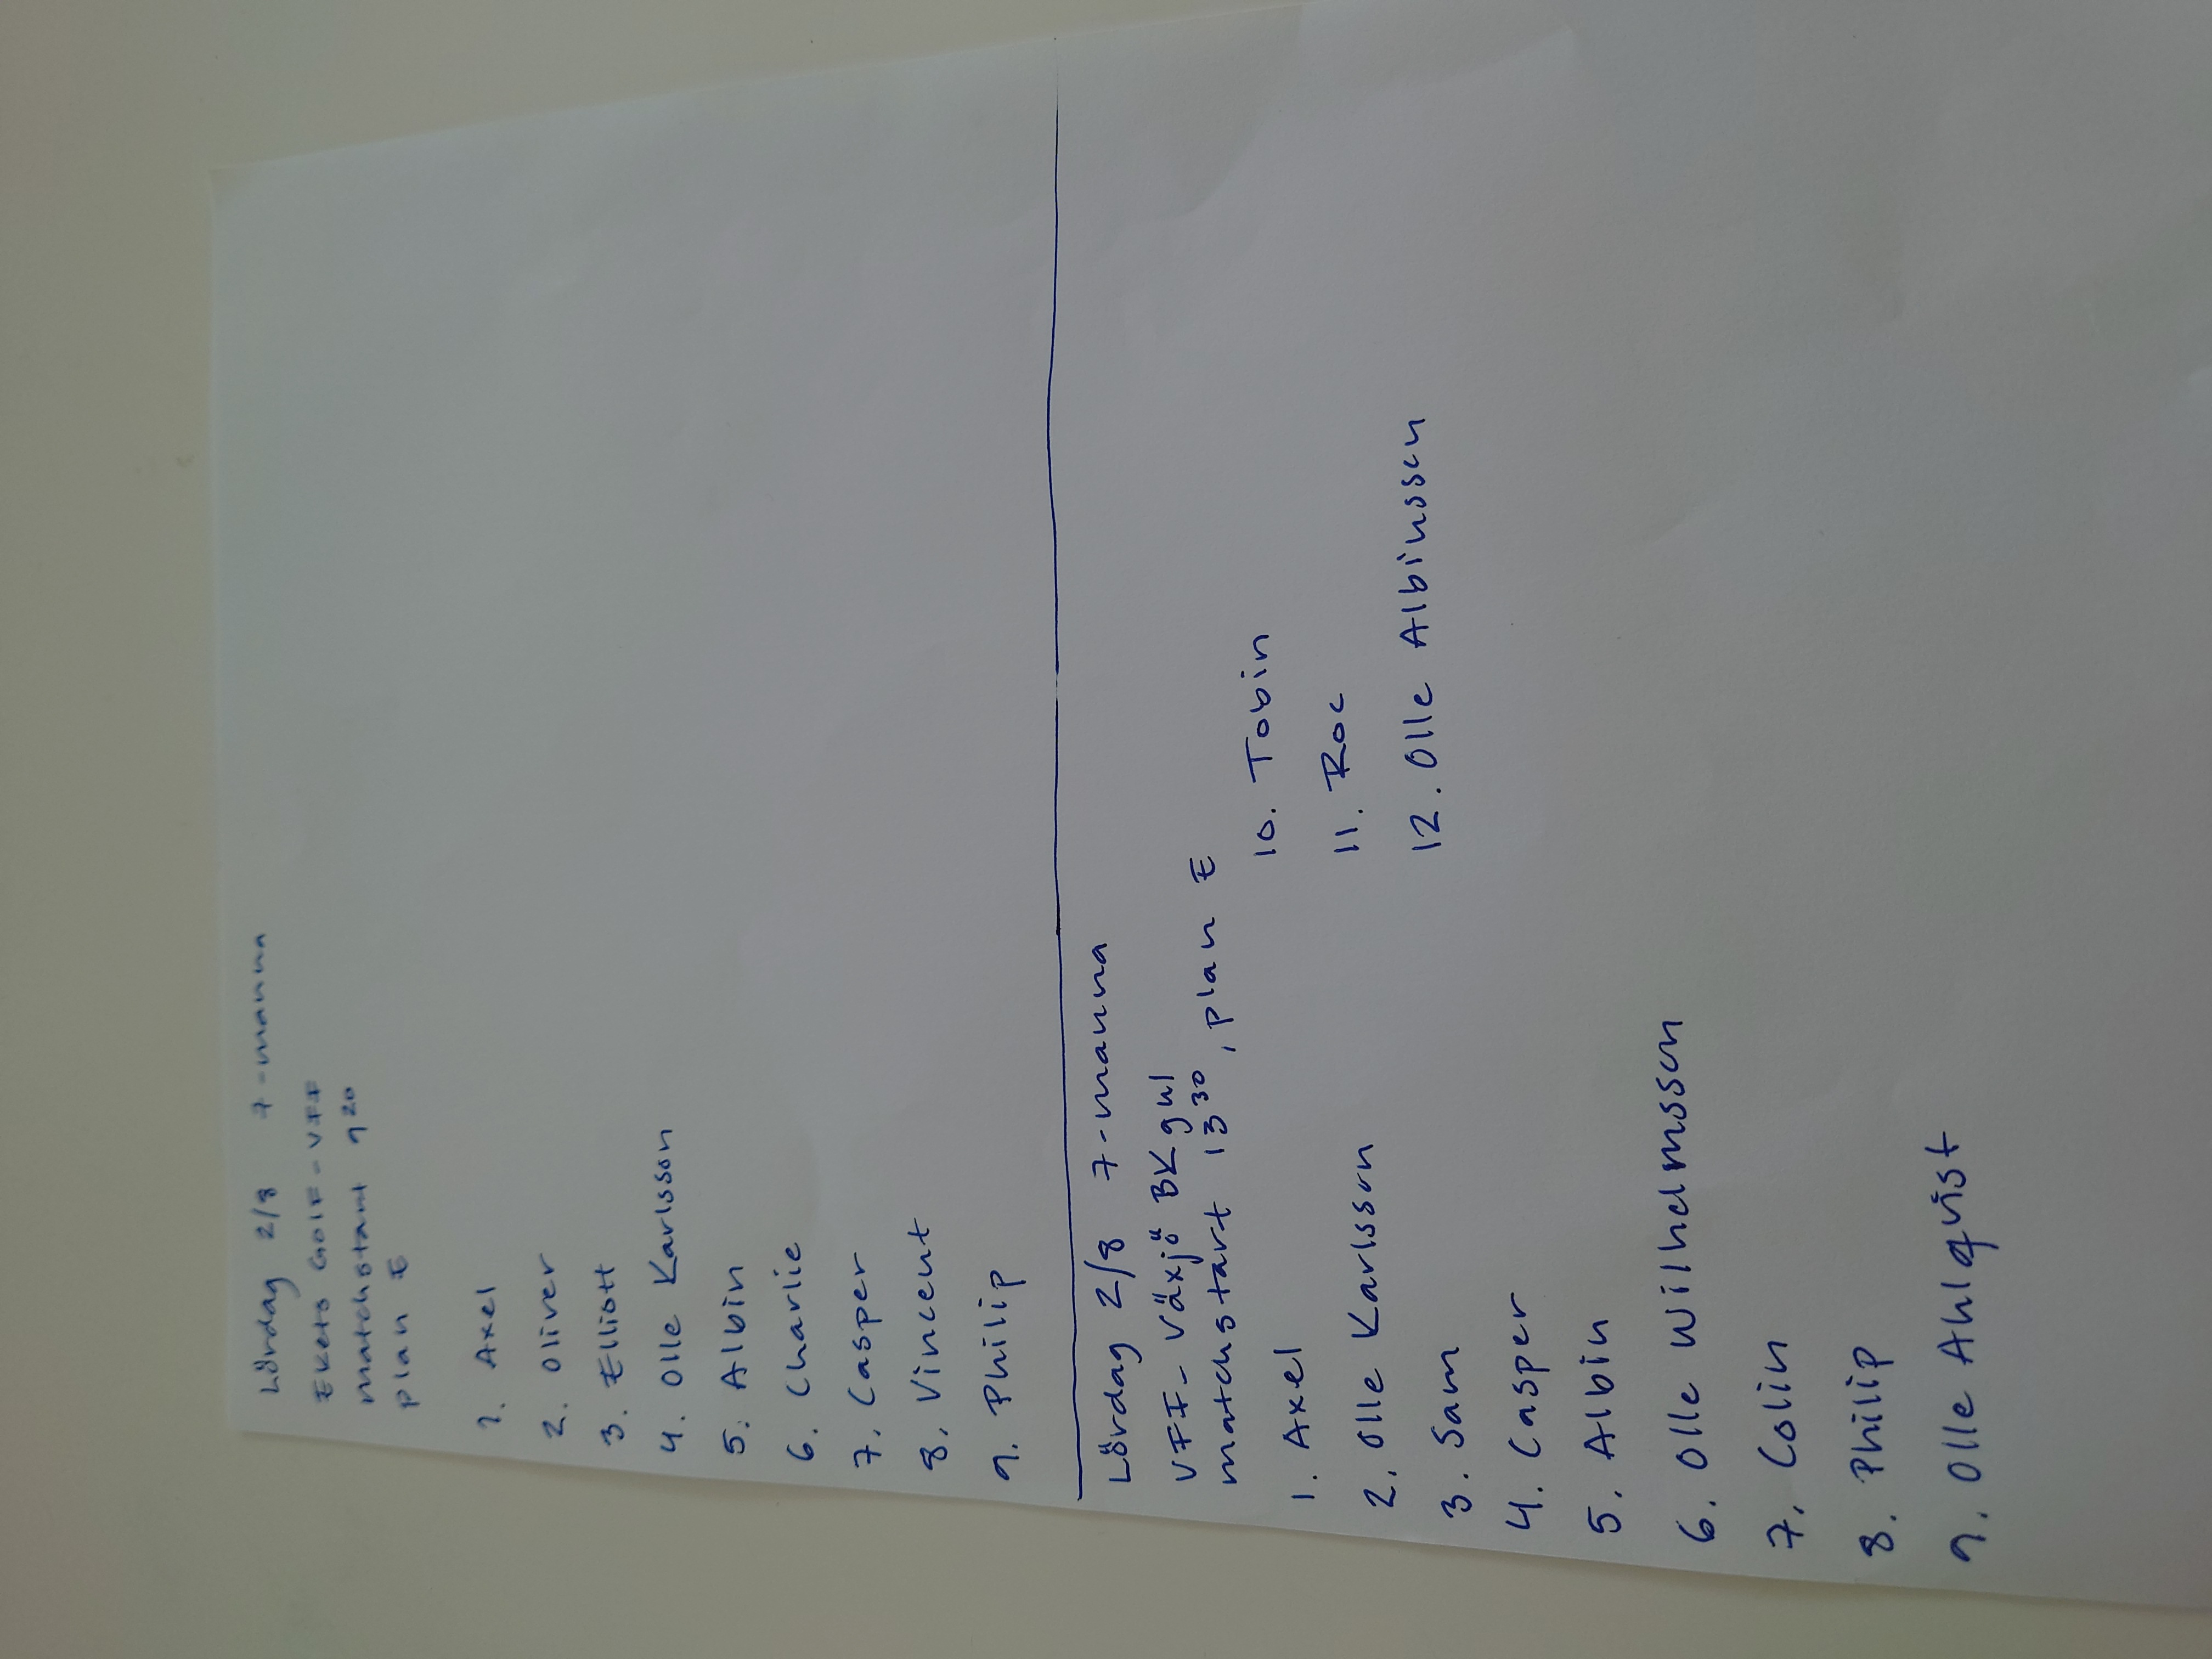 Lördag 2/8 7-manna
Ekets GOIF - VFF
matchstart 9 20
plan E
1. Axel
2. Oliver
3. Elliott
4. Olle Karlsson
5. Albin
6. Charlie
7. Casper
8. Vincent
9. Philip
Lördag 2/8 7-manna
VFF - Växjö BK gul
matchstart 13 30, plan E
1. Axel
2. Olle Karlsson
3. Sam
4. Casper
5. Albin
6. Olle Wilhelmsson
7. Colin
8. Philip
9. Olle Ahlqvist
10. Tobin
11. Roc
12. Olle Albinsson